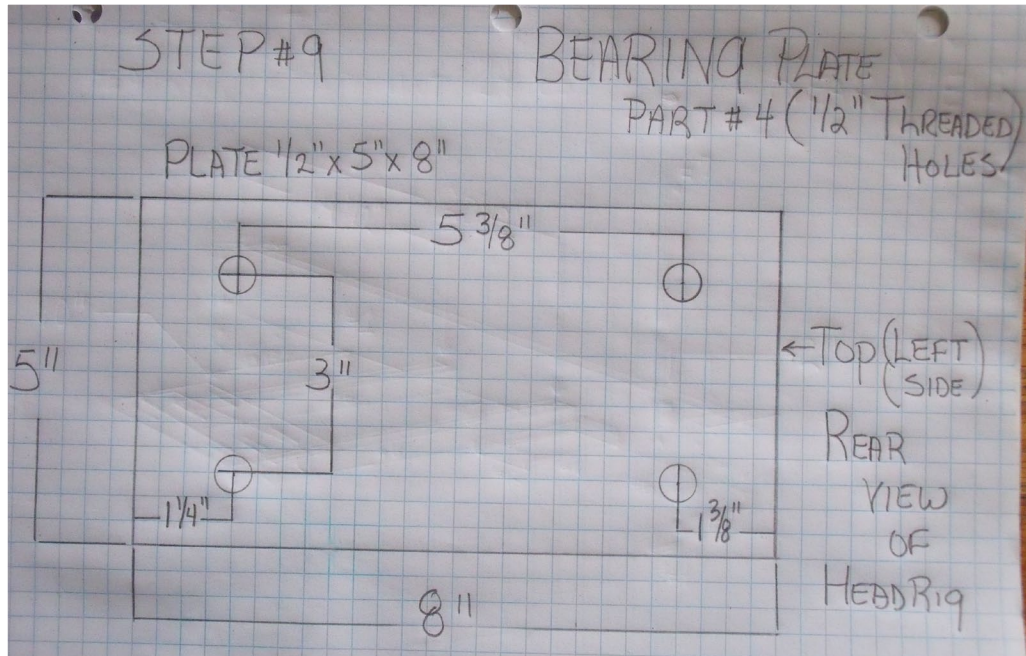 STEP #9
BEARING PLATE
PART #4 (1/2" THREADED
HOLES)
PLATE 1/2" x 5" x 8"
5 3/8"
5"
3"
←TOP (LEFT
SIDE)
REAR
VIEW
OF
HEADRIG
1 1/4"
1 3/8"
8"